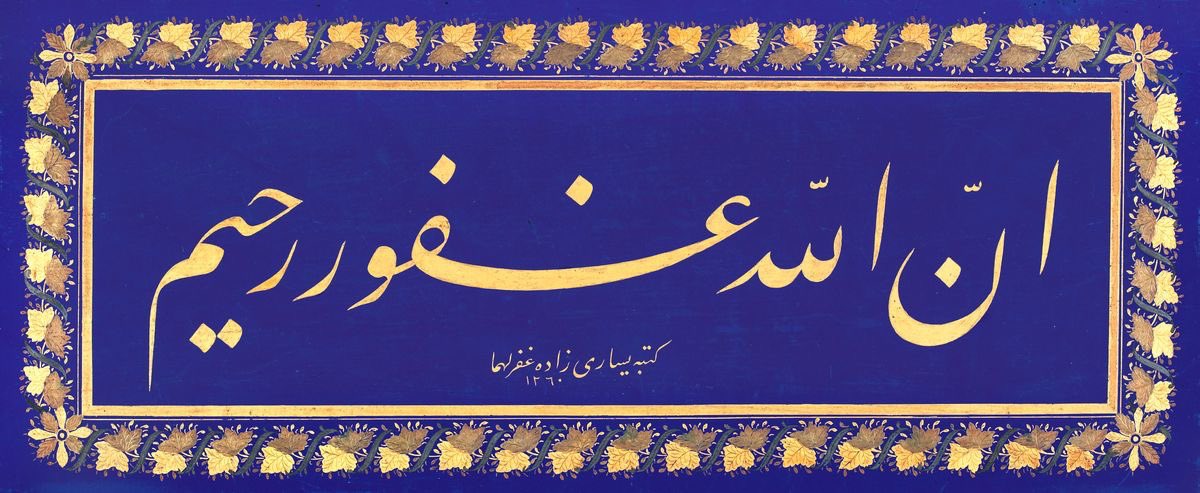 ان الله غفور رحيم
كتبه يسارى زاده غفرلهما
١٢٦٠